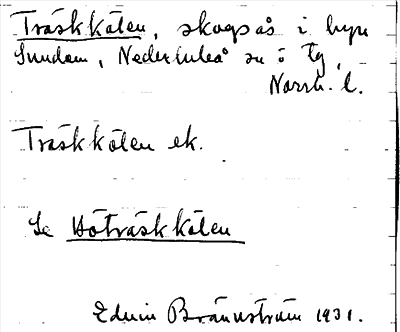 Träskkölen, skogsås i byn
Sundom, Nederluleå sn o tg,
Norrb. l.
Träskkölen ek.
Se Hötträskkölen
Edvin Brännström 1931.